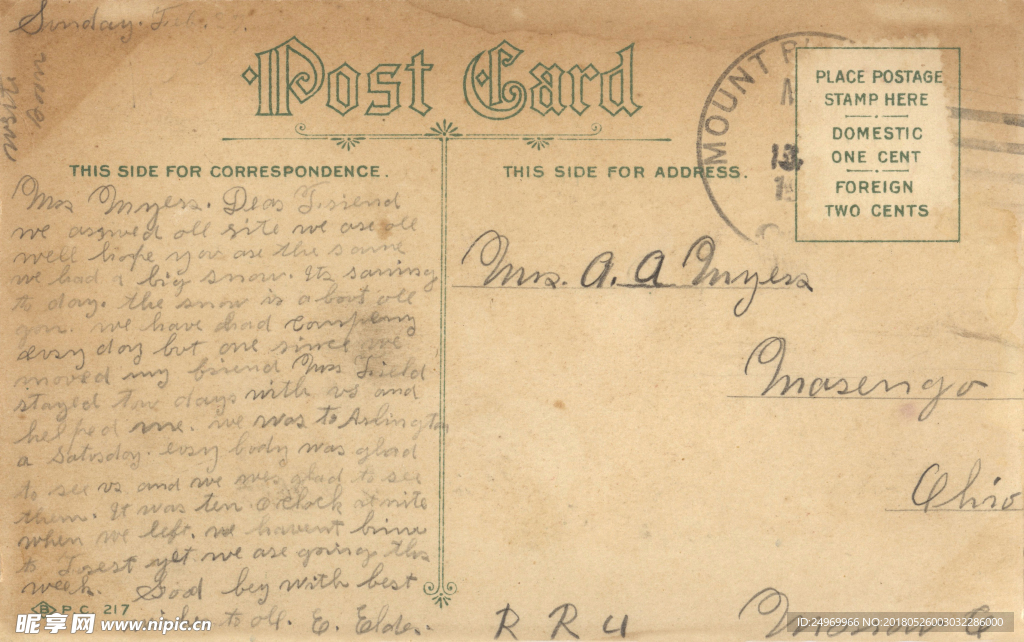 Sunday.
Post Card
MOUNT
PLACE POSTAGE
STAMP HERE
DOMESTIC
ONE CENT
FOREIGN
TWO CENTS
THIS SIDE FOR CORRESPONDENCE.
THIS SIDE FOR ADDRESS.
Mrs Myers. Dear Friend
we arrived all rite we are all
well hope you are the same
we had a big snow. Its raining
to day. the snow is about all
gon. we have had company
every day but one since we
moved my friend Mrs Field
stayed two days with us and
helped me. we was to Arlington
a Saturday. every body was glad
to see us and we was glad to see
them. It was ten o'clock at nite
when we left. we havent bin
to Forest yet we are going this
week. Good bey with best
to all. E. Elder.
Mrs. A. A Myers
Masengo
Ohio
R R 4
B P.C. 217
昵享网 www.nipic.cn
ID:24969966 NO:20180526003032286000